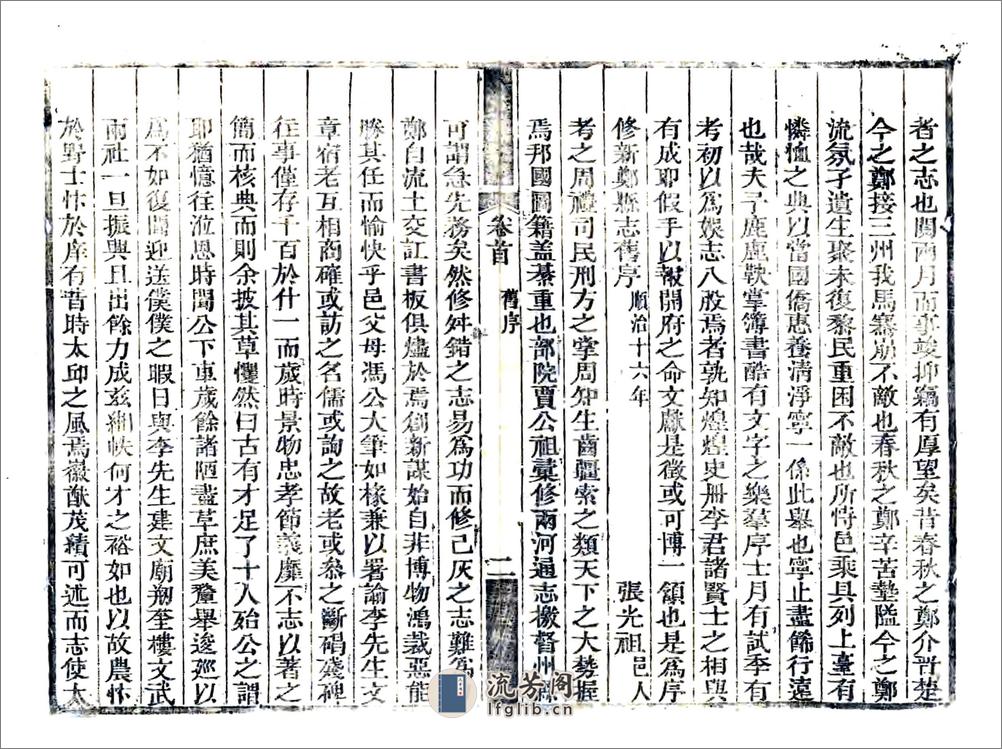 者之志也閱兩月而事竣抑竊有厚望矣昔春秋之鄭介晋楚
今之鄭接三州我馬騫崩不敵也春秋之鄭辛苦墊隘今之鄭
流氛孑遺生聚未復黎民重困不敵也所恃邑乘具列上臺有
憐恤之典以當國僑惠養清淨寧一係此舉也寧止盡餙行遠
也哉夫子鹿鹿鞅掌簿書酷有文字之樂羣序士月有試季有
考初以為娛志八股焉者孰知煌煌史册李君諸賢士之相與
有成即假手以報開府之命文獻是徵或可博一頷也是為序
修新鄭縣志舊序 順治十六年 張光祖 邑人
考之周禮司民刑方之掌周知生齒疆索之類天下之大勢握
焉邦國圖籍盖綦重也部院賈公祖彙修兩河通志檄督州縣
可謂急先務矣然修舛錯之志易為功而修已灰之志難為
卷首 舊序 二
鄭自流土交訌書板俱燼於焉創新謀始自非博物鴻裁惡能
勝其任而愉快乎邑父母馮公大筆如椽兼以署諭李先生文
章宿老互相商確或訪之名儒或詢之故老或叅之斷碣殘碑
往事僅存千百於什一而歲時景物忠孝節義靡不志以著之
簡而核典而則余披其草懼然曰古有才足了十人始公之謂
即猶憶往涖恩時聞公下車歲餘諸陋盡草庶美釐舉逡廵以
為不如復聞迎送僕僕之暇日與李先生建文廟剏奎樓文武
兩社一旦振興且出餘力成玆緗帙何才之裕如也以故農忭
於野士忭於庠有昔時太邱之風焉徽猷茂績可述而志使太
流芳阁
lfglib.cn